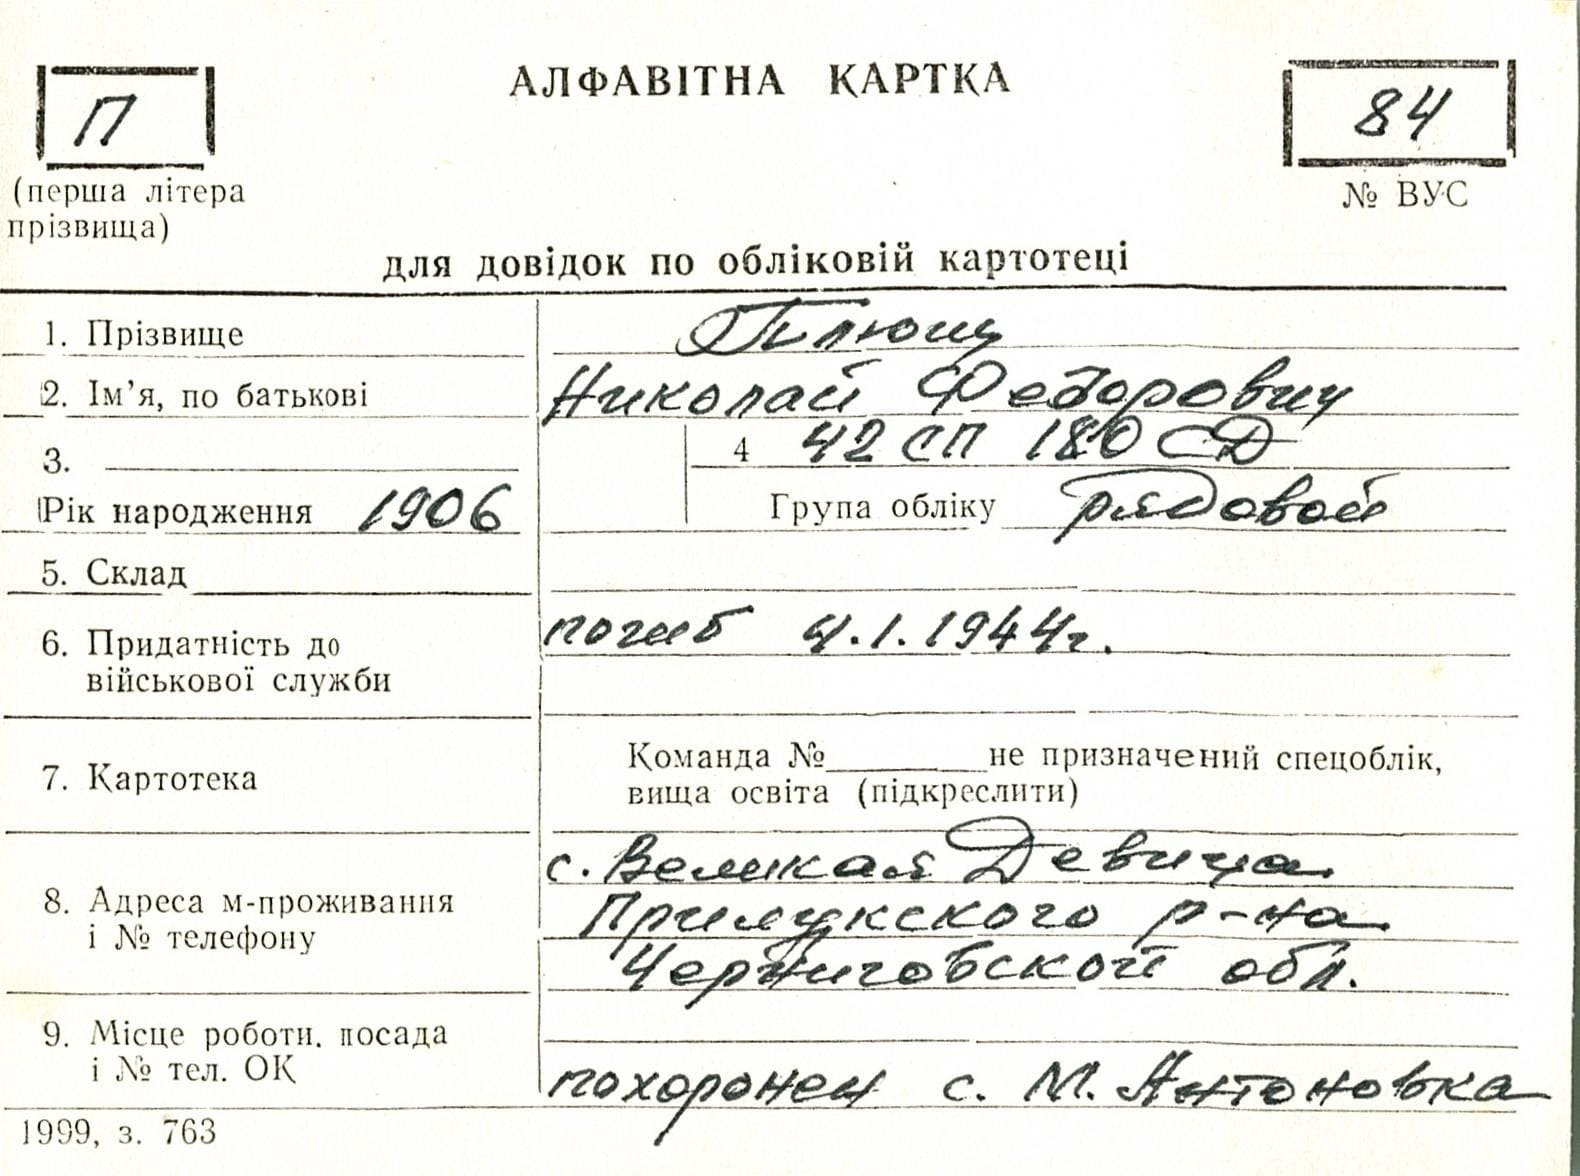 П
АЛФАВІТНА КАРТКА
84
(перша літера
прізвища)
№ ВУС
для довідок по обліковій картотеці
1. Прізвище Плющ
2. Ім’я, по батькові Николай Федорович
3.
4 42 СП 180 СД
Рік народження 1906
Група обліку рядовой
5. Склад
6. Придатність до погиб 4.1.1944г.
військової служби
7. Картотека
Команда № не призначений спецоблік,
вища освіта (підкреслити)
с. Великая Девица
8. Адреса м-проживання Прилукского р-на
і № телефону Черниговской обл.
9. Місце роботи, посада
і № тел. ОК похоронен с. М. Антоновка
1999, з. 763